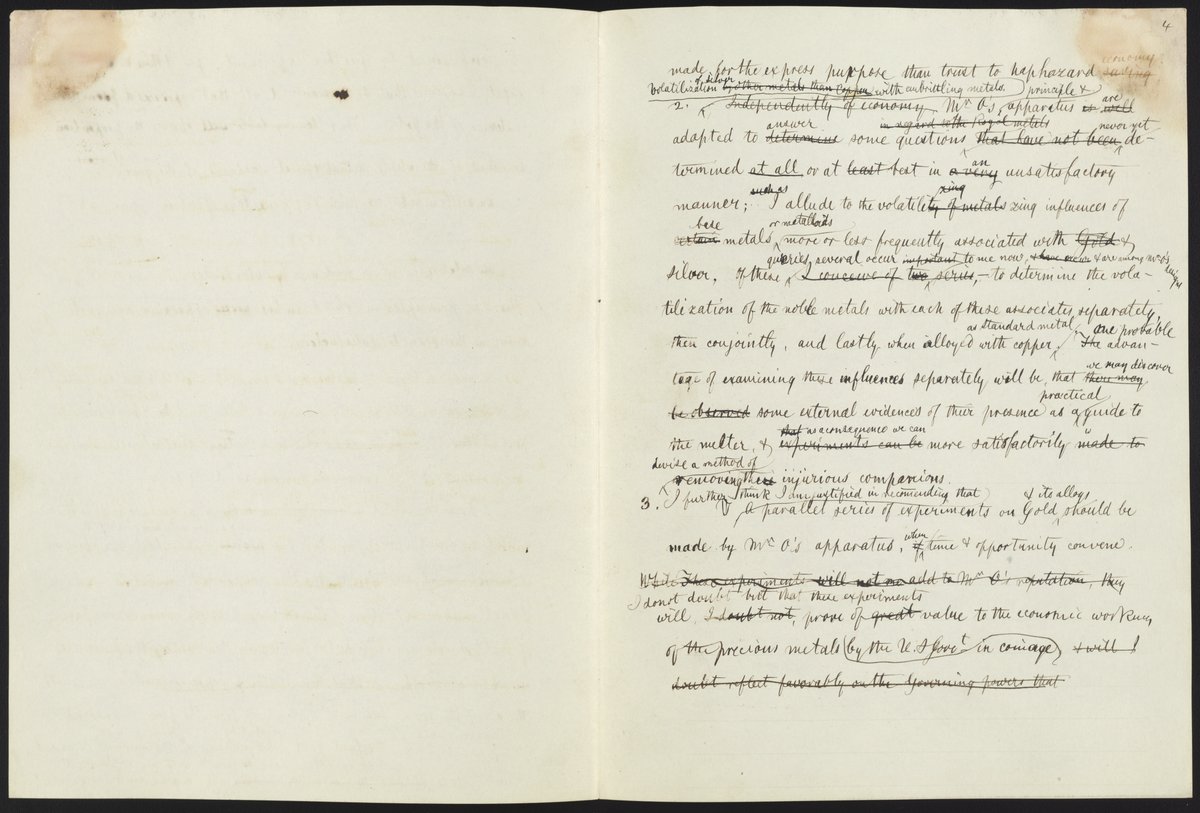 4
economy
made for the express purpose than trust to haphazard saving
of silver
Volatilization by other metals than Copper with embrittling metals. principle &
2. Independently of economy Mr O's, apparatus is well are
answer in regard to the Royal metals never yet
adapted to determine some questions that have not been de-
termined at all or at least best in a very an unsatisfactory
such as zing
manner; I allude to the volatility of metals zing influences of
base or metalloids
certain metals, more or less frequently associated with Gold &
queries, several occur important to me now, & are among Mr O's
silver. Of these I conceive of two series, - to determine the vola-
tilization of the noble metals with each of these associates, separately,
as standard metal, one probable
then conjointly, and lastly, when alloyed with copper. The advan-
we may discover
tage of examining these influences separately will be, that there may
practical
be observed some external evidences of their presence as a guide to
that as a consequence we can
the melter, & experiments can be more satisfactorily made to
devise a method of
removing their injurious companions.
I further think I am justified in recomending that & its alloys
3. A parallel series of experiments on Gold should be
when
made by Mr O's apparatus, if time & opportunity convene.
While These experiments will not me add to Mr O's reputation, they
I do not doubt but that these experiments
will, I doubt not, prove of great value to the economic working
of the precious metals by the U. S Govt in coinage, & will I
doubt reflect favorably on the Governing powers that